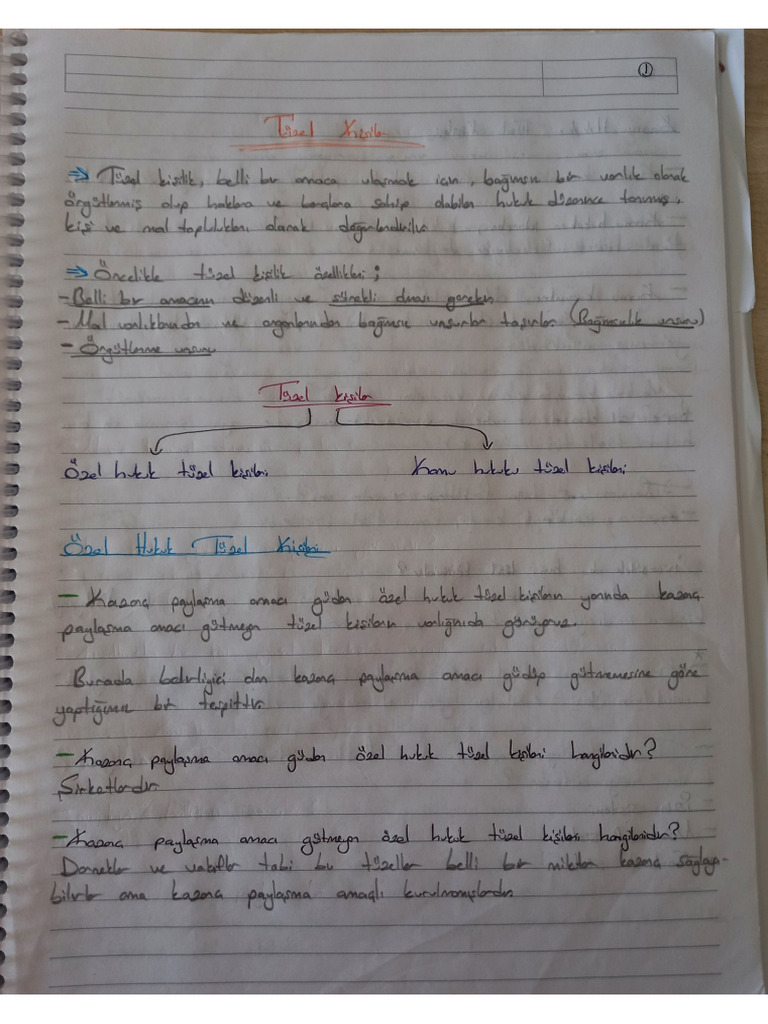 ①
Tüzel Kişiler
⇒ Tüzel kişilik, belli bir amaca ulaşmak için, bağımsız bir varlık olarak
örgütlenmiş olup haklara ve borçlara sahip olabilen hukuk düzenince tanınmış,
kişi ve mal toplulukları olarak değerlendirilir.
⇒ Öncelikle tüzel kişilik özellikleri;
- Belli bir amacının düzenli ve sürekli olması gereken
- Mal varlıklarından ve organlarından bağımsız unsurlar taşırlar (Bağımsızlık unsuru)
- Örgütlenme unsuru
Tüzel kişiler
Özel hukuk tüzel kişileri Kamu hukuku tüzel kişileri
Özel Hukuk Tüzel Kişileri
- Kazanç paylaşma amacı güden özel hukuk tüzel kişilerin yanında kazanç
paylaşma amacı gütmeyen tüzel kişilerin varlığınıda görüyoruz.
Burada belirleyici olan kazanç paylaşma amacı güdüp gütmemesine göre
yaptığımız bir tespittir.
- Kazanç paylaşma amacı güden özel hukuk tüzel kişileri hangileridir?
Şirketlerdir
- Kazanç paylaşma amacı gütmeyen özel hukuk tüzel kişileri hangileridir?
Dernekler ve vakıflar tabi bu tüzeller belli bir miktar kazanç sağlaya-
bilirler ama kazanç paylaşma amaçlı kurulmamışlardır.